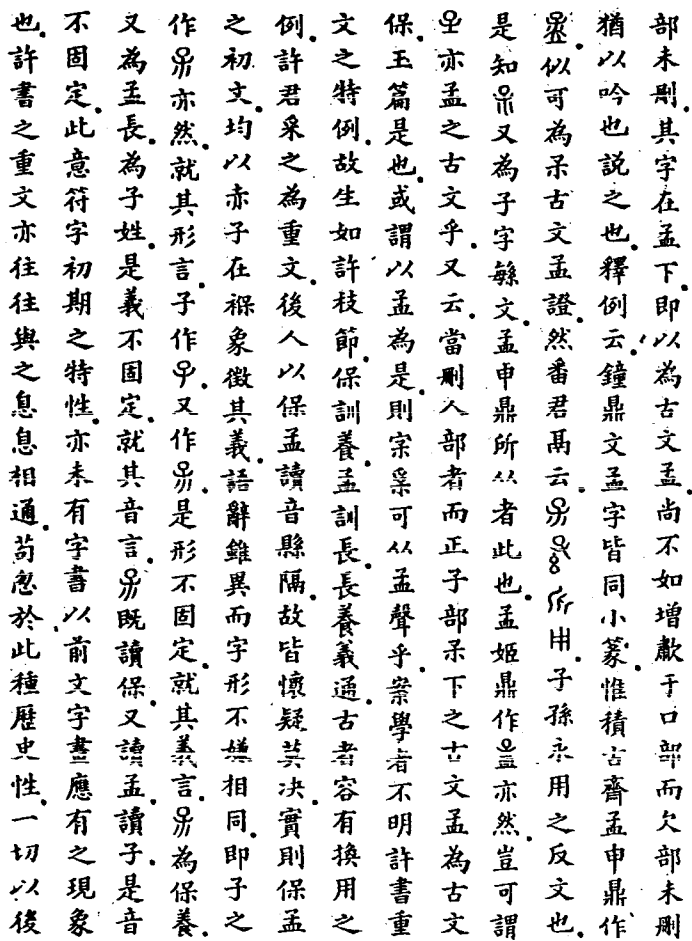 部未刪。其字在孟下。即以為古文孟。尚不如增歗于口部而欠部未刪
猶以吟也説之也。釋例云。鐘鼎文孟字皆同小篆。惟積古齋孟申鼎作
似可為古文孟證。然番君鬲云。子孫永用之反文也。
是知又為子字緐文。孟申鼎所从者此也。孟姬鼎作亦然。豈可謂
亦孟之古文乎。又云。當刪人部者而正子部呆下之古文孟為古文
保。玉篇是也。或謂以孟為是。則宗可从孟聲乎。案學者不明許書重
文之特例。故生如許枝節。保訓養。孟訓長。長養義通。古者容有換用之
例。許君采之為重文。後人以保孟讀音縣隔。故皆懷疑莫决。實則保孟
之初文。均以赤子在褓象徵其義。語辭雖異而字形不嫌相同。即子之
作亦然。就其形言。子作又作。是形不固定。就其義言。為保養。
又為孟長。為子姓。是義不固定。就其音言。既讀保。又讀孟。讀子。是音
不固定。此意符字初期之特性。亦未有字書以前文字畫應有之現象
也。許書之重文亦往往與之息息相通。苟忽於此種歷史性。一切以後